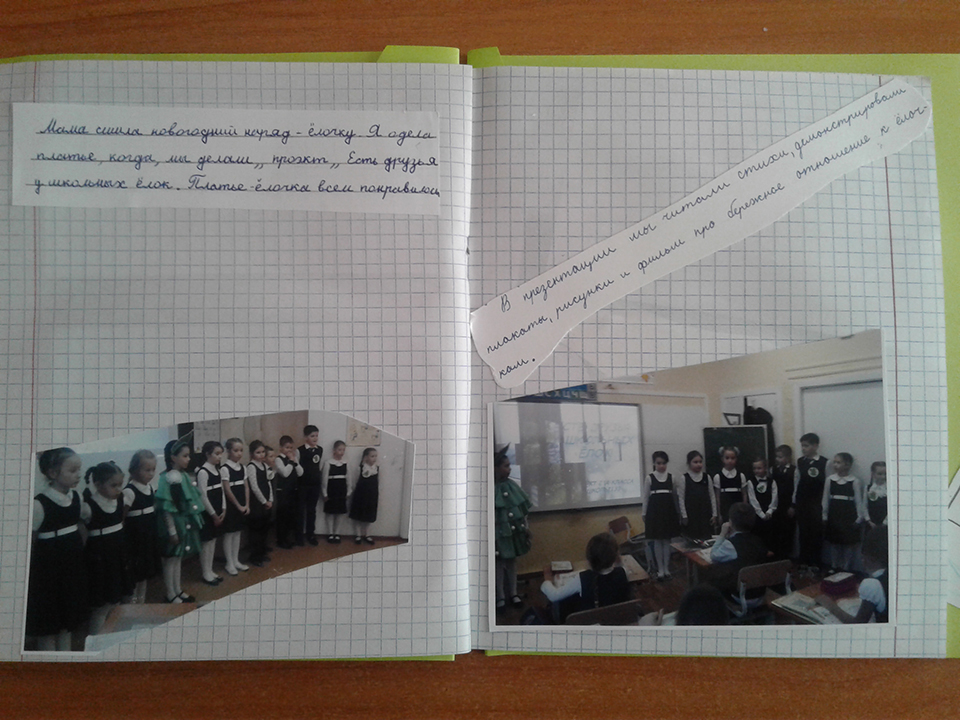 Мама сшила новогодний наряд - ёлочку. Я одела
платье, когда, мы делали „ проэкт „ Есть друзья
у школьных ёлок. Платье-ёлочка всем понравилось
В презентации мы читали стихи, демонстрировали
плакаты, рисунки и фильм про бережное отношение к ёлоч-
кам.